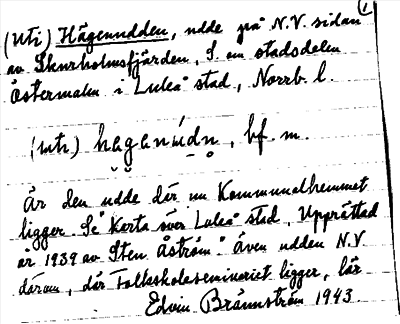 1
(Uti) Hägenudden, udde på N.V. sidan
av Skurholmsfjärden, S. om stadsdelen
Östermalm i Luleå stad, Norrb. l.
(uti) haganúdn, bf. m.
Är den udde där nu Kommunalhemmet
ligger. Se "Karta över Luleå stad, Upprättad
år 1939 av Sten Åström". Även udden N.V.
därom, där Folkskoleseminariet ligger, lär
Edvin Brännström 1943.